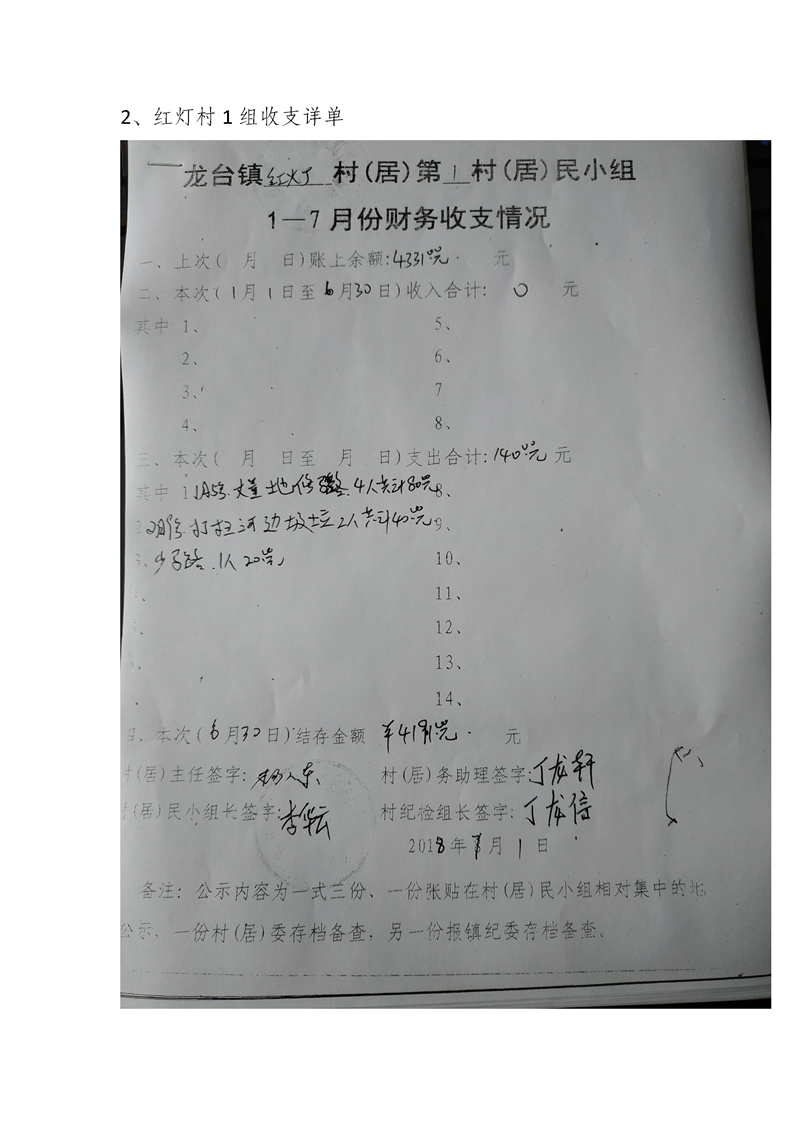 2、红灯村1组收支详单
龙台镇红灯村(居)第1村(居)民小组
1—7月份财务收支情况
一、上次( 月 日)账上余额:4331元 元
二、本次(1月1日至6月30日)收入合计: 0 元
其中 1、 5、
2、 6、
3、 7
4、 8、
三、本次( 月 日至 月 日)支出合计:140元 元
其中 1 4人共计80元 8、
打扫河边垃圾2人共计40 9、
1人20 10、
11、
12、
13、
14、
四、本次(6月30日)结存金额 元
村(居)主任签字: 村(居)务助理签字:丁龙轩
村(居)民小组长签字:李华云 村纪检组长签字:丁龙信
2018年 月1日
备注:公示内容为一式三份、一份张贴在村(居)民小组相对集中的地
公示、一份村(居)委存档备查,另一份报镇纪委存档备查。